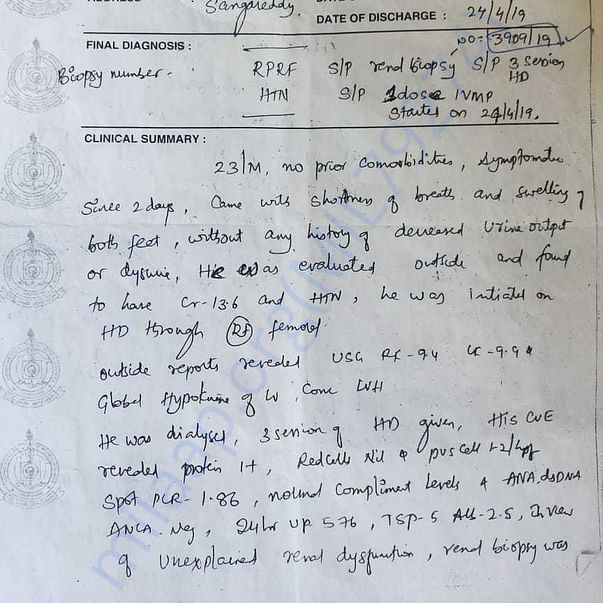 Sangareddy.
DATE OF DISCHARGE : 24/4/19
NO= 3909/19
FINAL DIAGNOSIS :
Biopsy number - RPRF S/P renal biopsy S/P 3 session HD
HTN S/P 1 dose IVMP
Started on 24/4/19.
CLINICAL SUMMARY :
23/M, no prior comorbidities, symptomatic
since 2 days, came with shortness of breath and swelling of
both feet, without any history of decreased urine output
or dysuria, He was evaluated outside and found
to have Cr-13.6 and HTN, he was initiated on
HD through Rt femoral
outside reports revealed USG RK-9.4 LK-9.9
Global Hypokinesia of LV, Conc LVH
He was dialysed, 3 session of HD given, His CUE
revealed protein 1+, Red cells Nil & pus cell 1-2/hpf
Spot PCR-1.86, normal compliment levels & ANA, dsDNA
ANCA-Neg, 24 hr UP 576, TSP-5 Alb-2.5, In view
of unexplained renal dysfunction, renal biopsy was